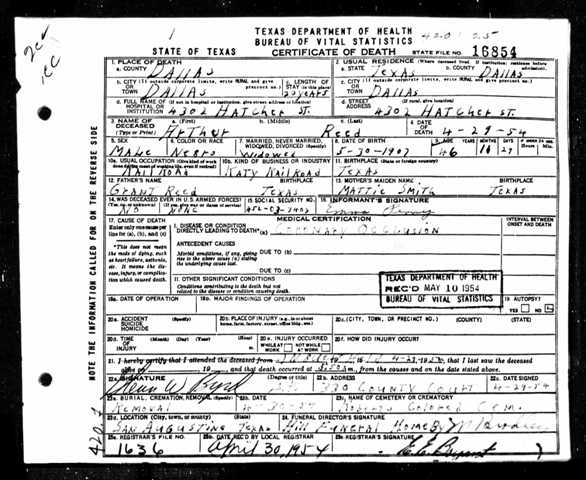 1
TEXAS DEPARTMENT OF HEALTH
BUREAU OF VITAL STATISTICS
STATE OF TEXAS
CERTIFICATE OF DEATH
STATE FILE NO. 16854
1. PLACE OF DEATH
a. COUNTY Dallas
2. USUAL RESIDENCE (Where deceased lived. If institution: residence before admission).
a. STATE Texas b. COUNTY Dallas
b. CITY (If outside corporate limits, write RURAL and give precinct no.)
OR TOWN Dallas
c. LENGTH OF STAY (in this place)
c. CITY (If outside corporate limits, write RURAL and give precinct no.)
OR TOWN Dallas
d. FULL NAME OF (If not in hospital or institution, give street address or location)
HOSPITAL OR INSTITUTION 4302 Hatcher St.
d. STREET ADDRESS (If rural, give location)
4302 Hatcher St.
3. NAME OF DECEASED (Type or Print)
a. (First) Arthur b. (Middle) c. (Last) Reed
4. DATE OF DEATH 4-29-54
5. SEX Male
6. COLOR OR RACE Negro
7. MARRIED, NEVER MARRIED, WIDOWED, DIVORCED (Specify) Widowed
8. DATE OF BIRTH 5-30-1907
46 10 29
10a. USUAL OCCUPATION (Give kind of work done during most of working life, even if retired)
Rail Road
10b. KIND OF BUSINESS OR INDUSTRY
Katy Railroad
11. BIRTHPLACE (State or foreign country)
Texas
12. FATHER'S NAME BIRTHPLACE
Grant Reed Texas
13. MOTHER'S MAIDEN NAME BIRTHPLACE
Mattie Smith Texas
14. WAS DECEASED EVER IN U.S. ARMED FORCES?
No None
15. SOCIAL SECURITY NO.
16. INFORMANT'S SIGNATURE
Emma
17. CAUSE OF DEATH
Enter only one cause per line for (a), (b), and (c)
MEDICAL CERTIFICATION
INTERVAL BETWEEN ONSET AND DEATH
I. DISEASE OR CONDITION DIRECTLY LEADING TO DEATH* (a) Coronary Occlusion
*This does not mean the mode of dying, such as heart failure, asthenia, etc. It means the disease, injury, or complication which caused death.
ANTECEDENT CAUSES
Morbid conditions, if any, giving rise to the above cause (a) stating the underlying cause last.
DUE TO (b)
DUE TO (c)
II. OTHER SIGNIFICANT CONDITIONS
Conditions contributing to the death but not related to the disease or condition causing death.
TEXAS DEPARTMENT OF HEALTH
REC'D MAY 10 1954
BUREAU OF VITAL STATISTICS
18a. DATE OF OPERATION
18b. MAJOR FINDINGS OF OPERATION
19. AUTOPSY?
YES NO
20a. ACCIDENT SUICIDE HOMICIDE (Specify)
20b. PLACE OF INJURY (e.g., in or about home, farm, factory, street, office bldg., etc.)
20c. (CITY, TOWN, OR PRECINCT NO.) (COUNTY) (STATE)
20d. TIME OF INJURY (Month) (Day) (Year) (Hour)
20e. INJURY OCCURRED
WHILE AT WORK NOT WHILE AT WORK
20f. HOW DID INJURY OCCUR?
21. I hereby certify that I attended the deceased from
that I last saw the deceased
and that death occurred at from the causes and on the date stated above.
22a. SIGNATURE (Degree or title)
22b. ADDRESS County Court
22c. DATE SIGNED 4-29-54
23a. BURIAL, CREMATION, REMOVAL (Specify)
Removal
23b. DATE 4-30-54
23c. NAME OF CEMETERY OR CREMATORY
Colored Cem.
23d. LOCATION (City, town, or county) (State)
San Augustine Texas
24. FUNERAL DIRECTOR'S SIGNATURE
Hill Funeral Home By
25a. REGISTRAR'S FILE NO. 1636
25b. DATE REC'D BY LOCAL REGISTRAR April 30, 1954
25c. REGISTRAR'S SIGNATURE
NOTE THE INFORMATION CALLED FOR ON THE REVERSE SIDE